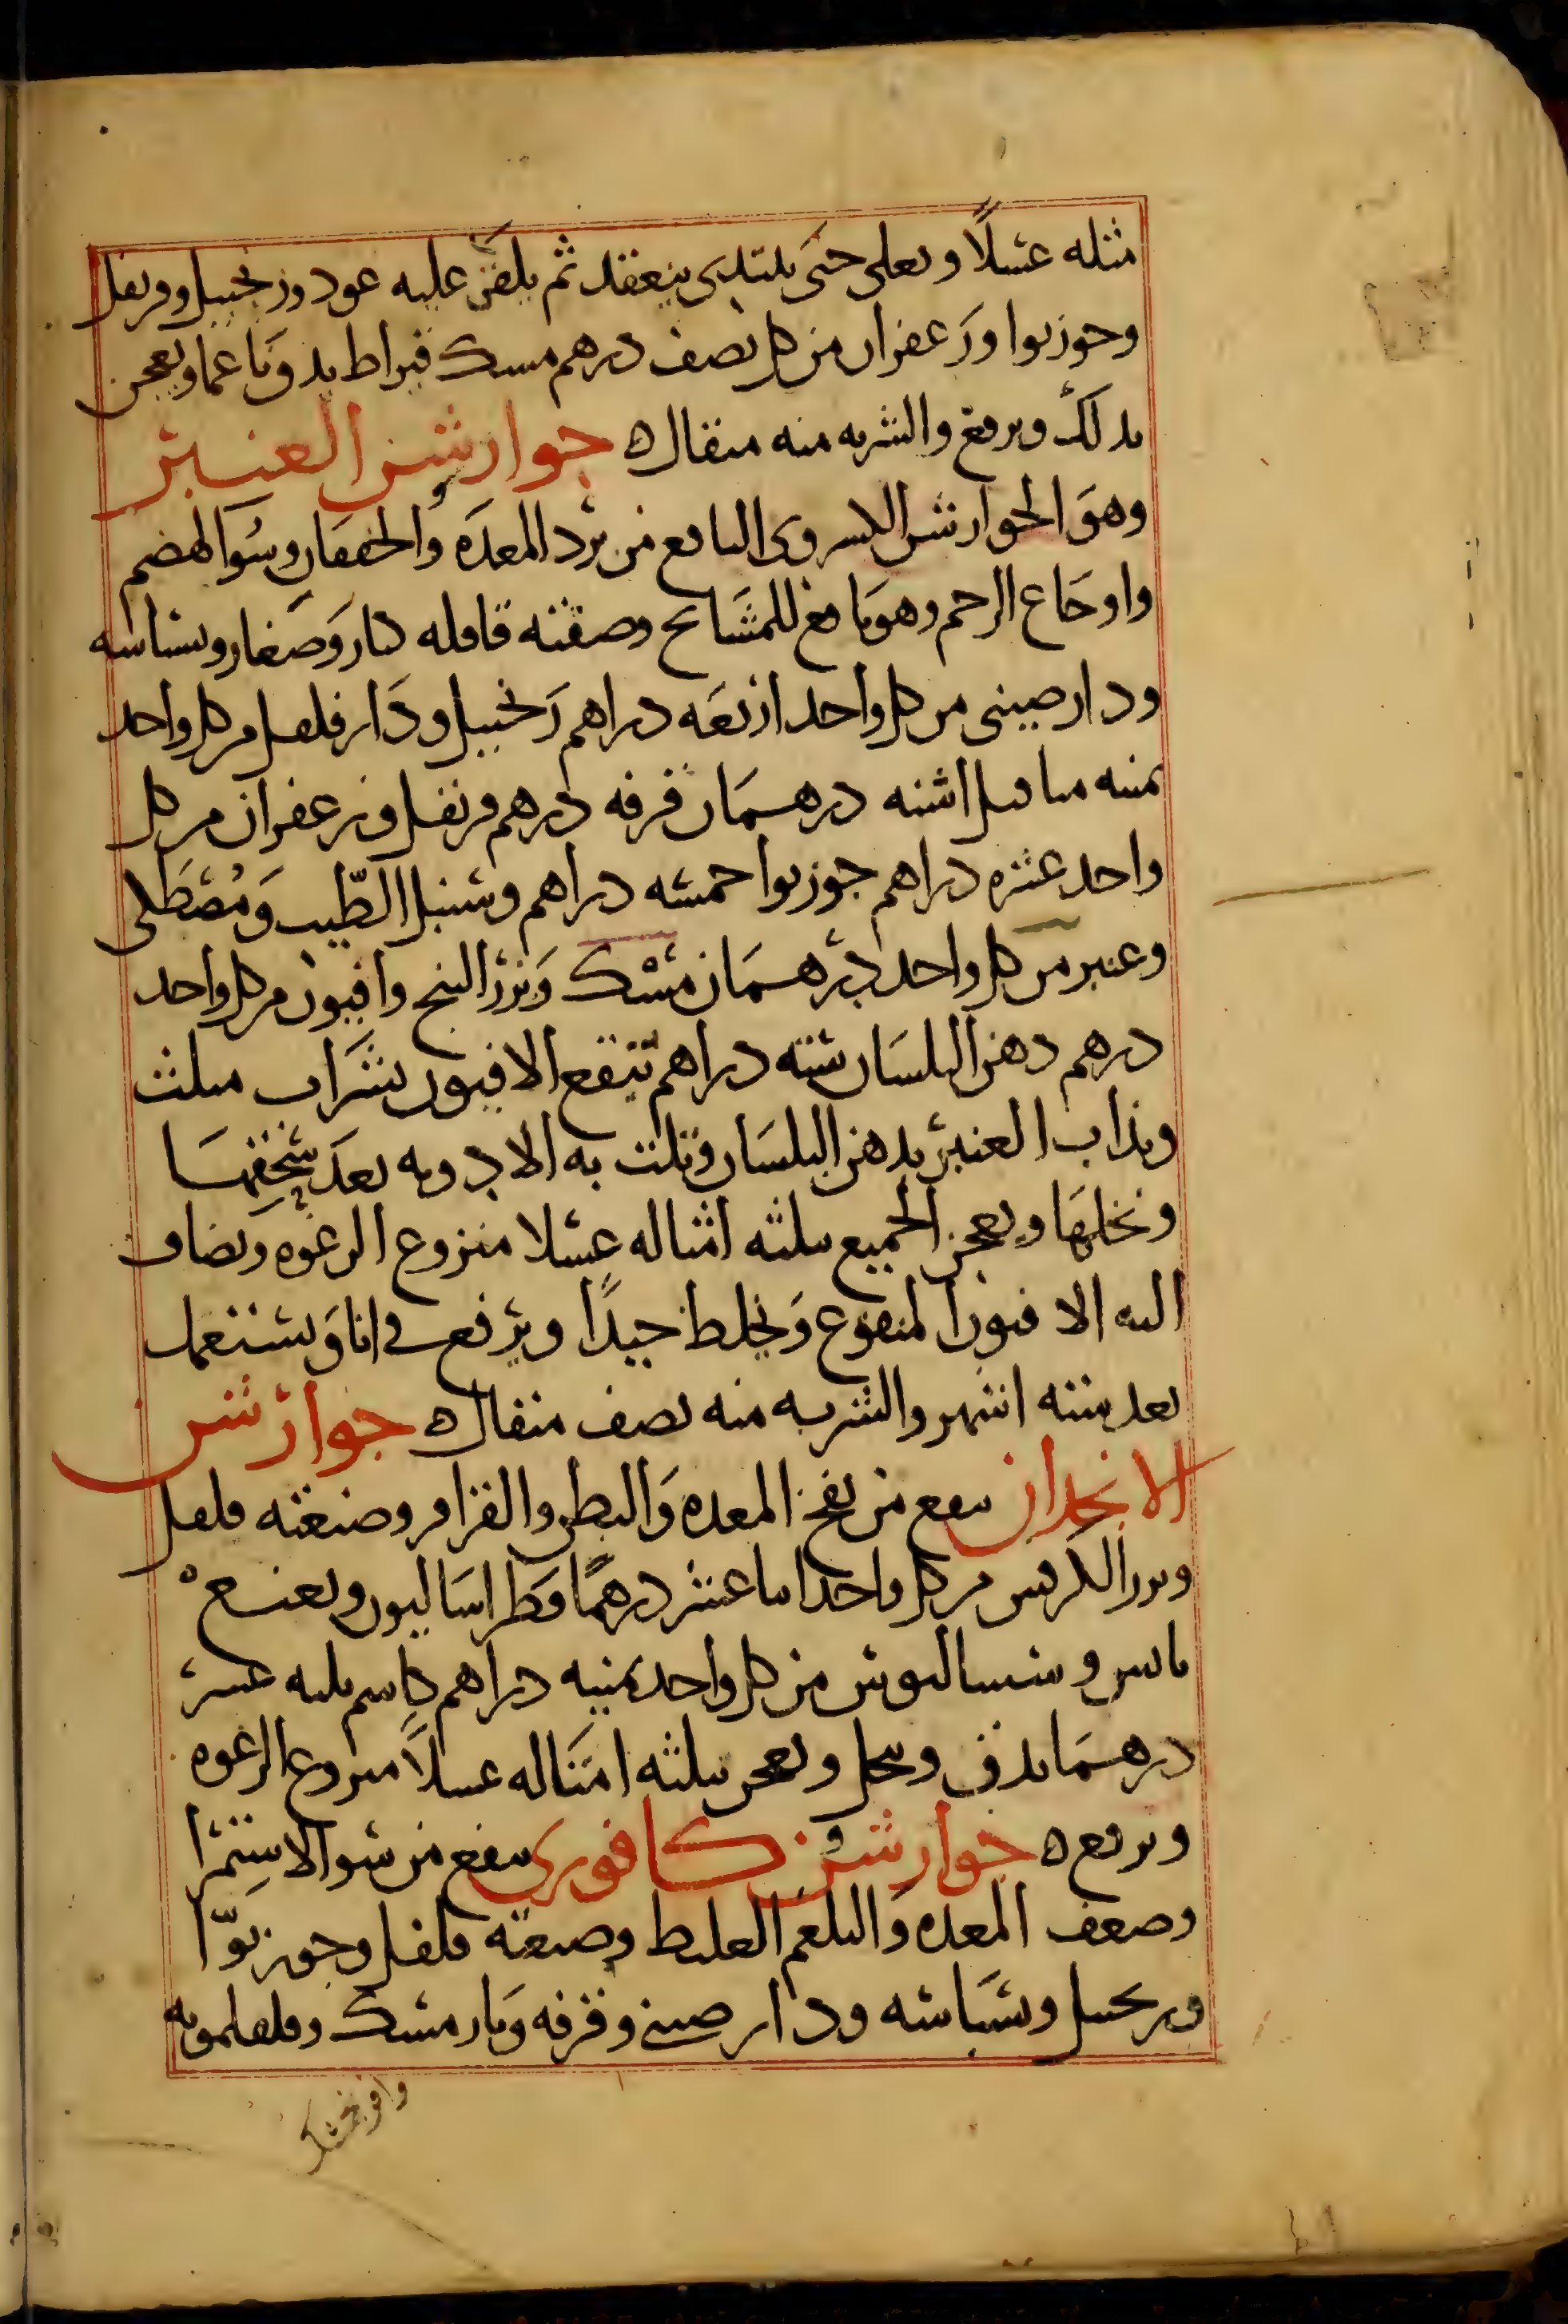 مثله عسلًا ويغلى حتى يبتدى ينعقد ثم يلقى عليه عود وزنجبيل وقرنفل
وجوزبوا وزعفران من كل نصف درهم مسك قيراط يدق ناعما ويعجن
بذلك ويرفع والشربه منه مثقال ه جوارشن العنبر
وهو الجوارشن الكسروى النافع من برد المعده والخفقان وسوالهضم
واوجاع الرحم وهو نافع للمشايخ وصفته قاقله كبار وصغار وبسباسه
ودارصينى من كل واحد اربعه دراهم زنجبيل ودارفلفل من كل واحد
ثمنيه مثاقيل اشنه درهمان قرفه درهم قرنفل وزعفران من كل
واحد عشره دراهم جوزبوا خمسه دراهم وسنبل الطّيب ومصطكى
وعنبر من كل واحد درهمان مسك وبزر البنج وافيون من كل واحد
درهم دهن البلسان سته دراهم ينقع الافيون بشراب مثلث
ويذاب العنبر بدهن البلسان وتلت به الادويه بعد سحقها
ونخلها ويعجن الجميع بثلثه امثاله عسلا منزوع الرغوه ويضاف
اليه الافيون المنقوع ويخلط جيدًا ويرفع فى انا ويستعمل
بعد سته اشهر والشربه منه نصف مثقال ه جوارشن
الانجدان ينفع من نفخ المعده والبطن والقراقر وصنعته فلفل
وبزر الكرفس من كل واحد اثنا عشر درهمًا فطراساليون ونعنع
يابس وسساليوس من كل واحد ثمنيه دراهم كاشم ثلثه عشر
درهما يدق وينخل ويعجن بثلثه امثاله عسلًا منزوع الرغوه
ويرفع ه جوارشن كافورى ينفع من سو الاستمرا
وضعف المعده والبلغم الغليظ وصنعته فلفل وجوزبوّا
وزنجبيل وبسباسه ودارصينى وقرفه ونارمشك وفلفلمويه
وافرنجمشك